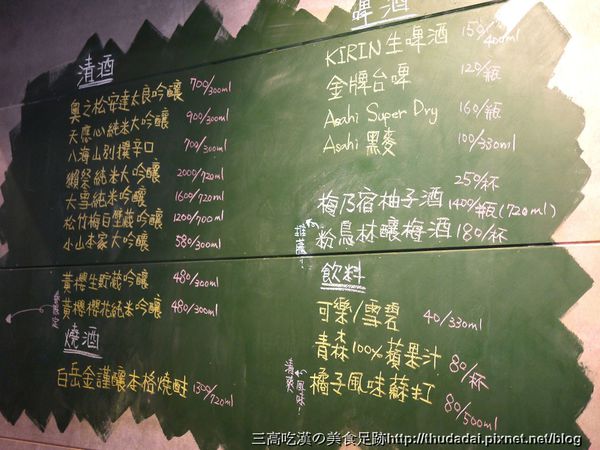 清酒
奧之松安達太良吟釀 700/300ml
天應心純米大吟釀 900/300ml
八海山別撰辛口 700/300ml
獺祭純米大吟釀 2000/720ml
大雪純米吟釀 1600/720ml
松竹梅白壁蔵吟釀 1200/700ml
小山本家大吟釀 580/300ml
黃櫻生貯蔵吟釀 480/300ml
黃櫻櫻花純米吟釀 480/300ml
燒酒
白岳金謹釀本格燒酎 1300/720ml
啤酒
KIRIN生啤酒 150/400ml
金牌台啤 120/瓶
Asahi Super Dry 160/瓶
Asahi 黑麥 100/330ml
250/杯
梅乃宿柚子酒 1400/瓶(720ml)
推薦!
粉鳥林釀梅酒 180/杯
飲料
可樂/雪碧 40/330ml
青森100%蘋果汁 80/杯
清爽風味!
橘子風味蘇打 80/500ml
三高吃漢の美食足跡http://thudadai.pixnet.net/blog